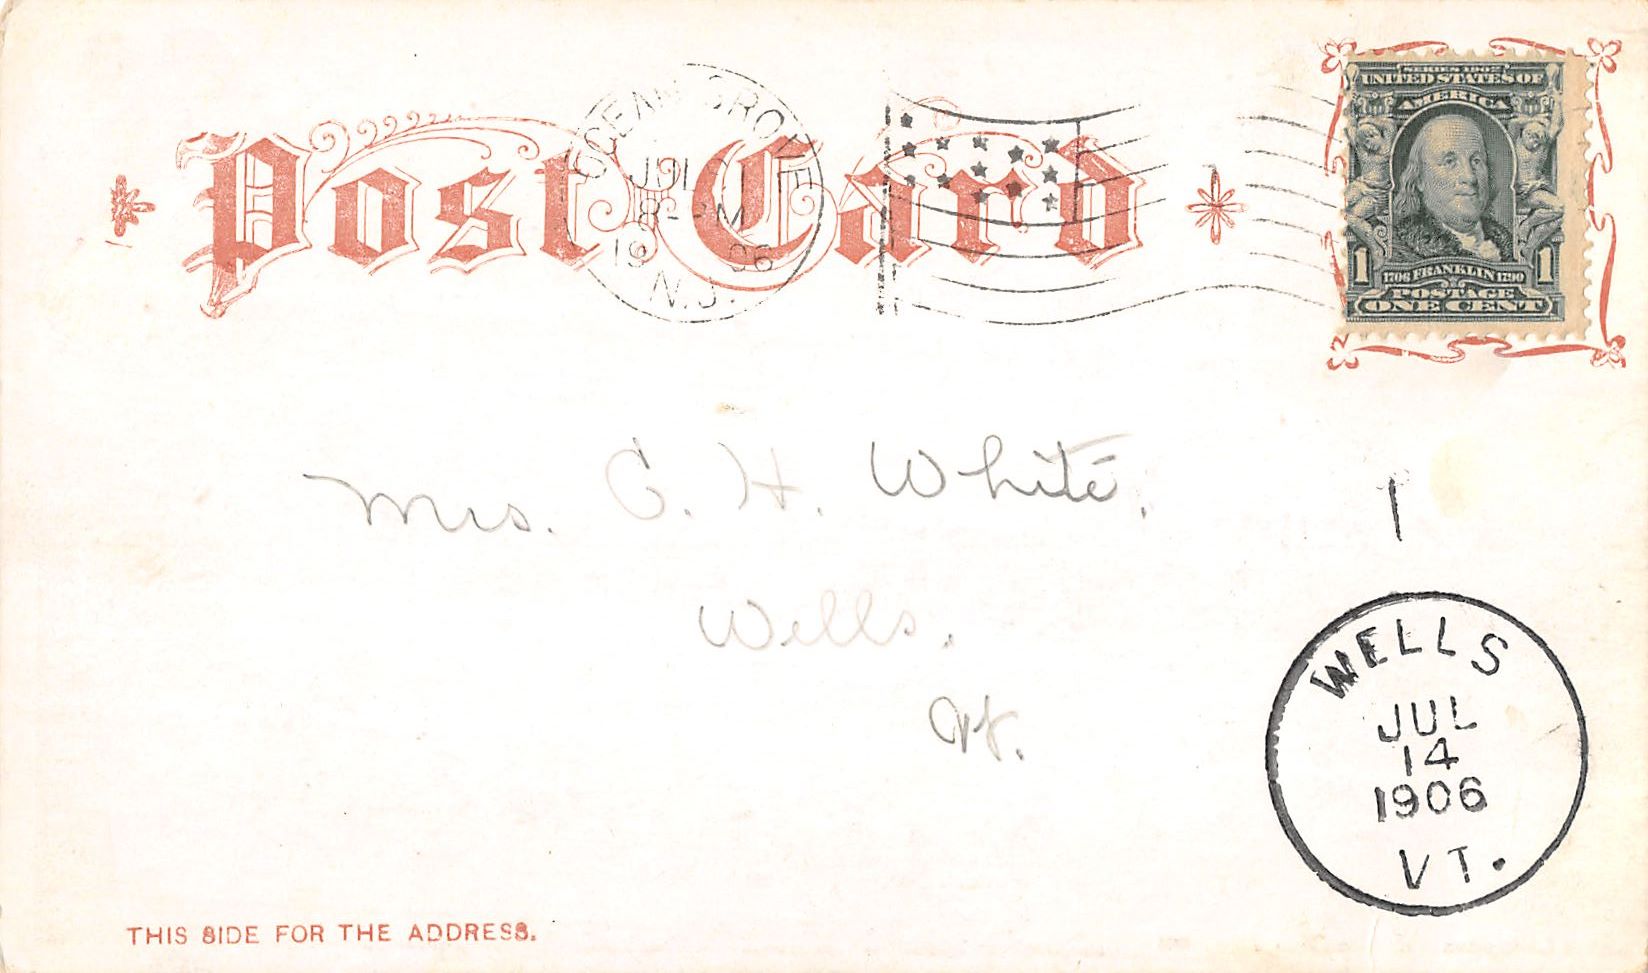 Post Card
OCEAN GROVE
JUL
8-PM
1906
N.J.
SERIES 1902
UNITED STATES OF
AMERICA
1 1
1706 FRANKLIN 1790
POSTAGE
ONE CENT
Mrs. C. H. White.
Wells.
Vt.
1
WELLS
JUL
14
1906
VT.
THIS SIDE FOR THE ADDRESS.